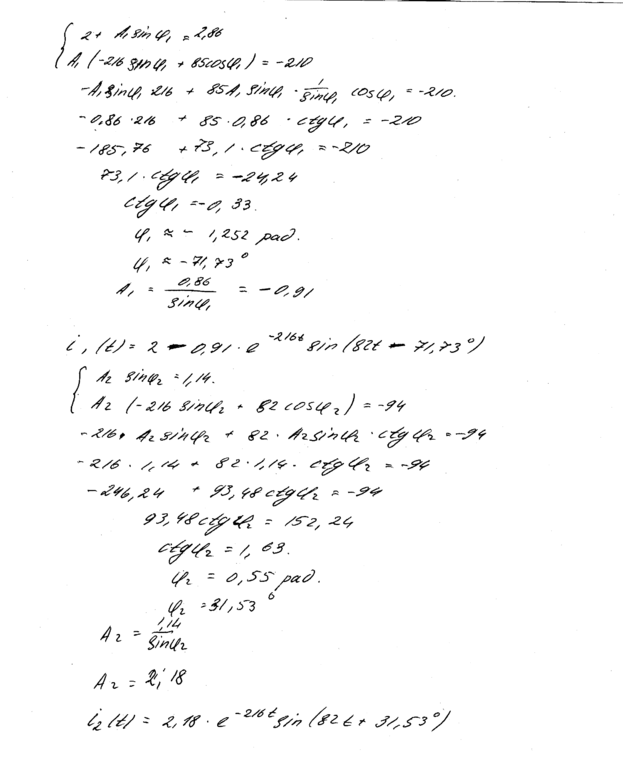 2 + A₁ sinφ₁ = 2,86
A₁ (-216 sinφ₁ + 85cosφ₁) = -210
-A₁ sinφ₁ 216 + 85A₁ sinφ₁ · 1/sinφ₁ cosφ₁ = -210.
-0,86 · 216 + 85 · 0,86 · ctgφ₁ = -210
-185,76 + 73,1 · ctgφ₁ = -210
73,1 · ctgφ₁ = -24,24
ctgφ₁ = -0,33.
φ₁ ≈ -1,252 рад.
φ₁ ≈ -71,73°
A₁ = 0,86/sinφ₁ = -0,91
i₁(t) = 2 - 0,91 · e^-216t sin(82t - 71,73°)
A₂ sinφ₂ = 1,14.
A₂ (-216 sinφ₂ + 82cosφ₂) = -94
-216 · A₂ sinφ₂ + 82 · A₂ sinφ₂ · ctgφ₂ = -94
-216 · 1,14 + 82 · 1,14 · ctgφ₂ = -94
-246,24 + 93,48ctgφ₂ = -94
93,48ctgφ₂ = 152,24
ctgφ₂ = 1,63.
φ₂ = 0,55 рад.
φ₂ = 31,53°
A₂ = 1,14/sinφ₂
A₂ = 2,18
i₂(t) = 2,18 · e^-216t sin(82t + 31,53°)